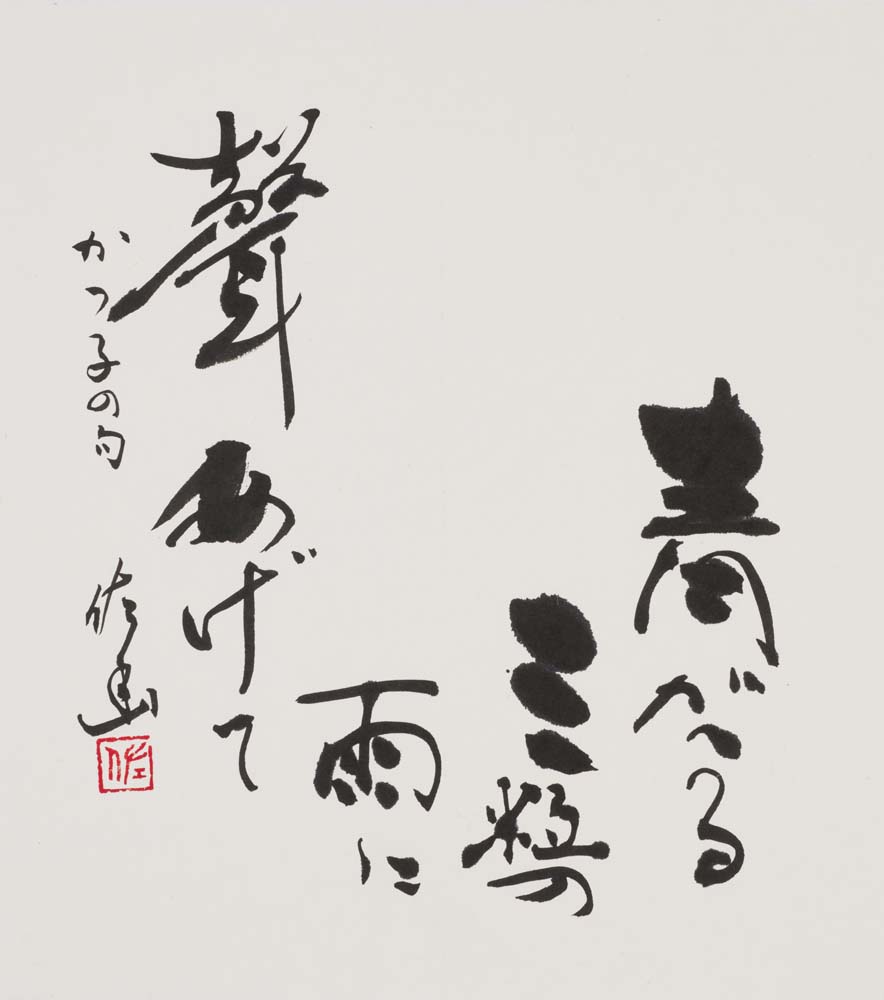 青がへる
三粒の
雨に
聲あげて
かつ子の句 佐
佐